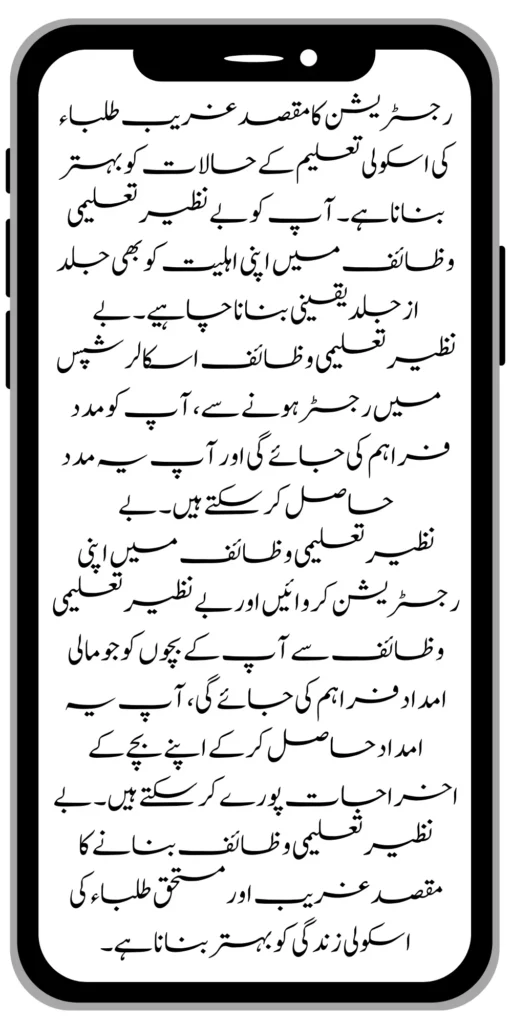 رجسٹریشن کا مقصد غریب طلباء
کی اسکولی تعلیم کے حالات کو بہتر
بنانا ہے۔ آپ کو بے نظیر تعلیمی
وظائف میں اپنی اہلیت کو بھی جلد
از جلد یقینی بنانا چاہیے۔ بے
نظیر تعلیمی وظائف اسکالرشپس
میں رجسٹر ہونے سے، آپ کو مدد
فراہم کی جائے گی اور آپ یہ مدد
حاصل کر سکتے ہیں۔ بے
نظیر تعلیمی وظائف میں اپنی
رجسٹریشن کروائیں اور بے نظیر تعلیمی
وظائف سے آپ کے بچوں کو جو مالی
امداد فراہم کی جائے گی، آپ یہ
امداد حاصل کر کے اپنے بچے کے
اخراجات پورے کر سکتے ہیں۔ بے
نظیر تعلیمی وظائف بنانے کا
مقصد غریب اور مستحق طلباء کی
اسکولی زندگی کو بہتر بنانا ہے۔